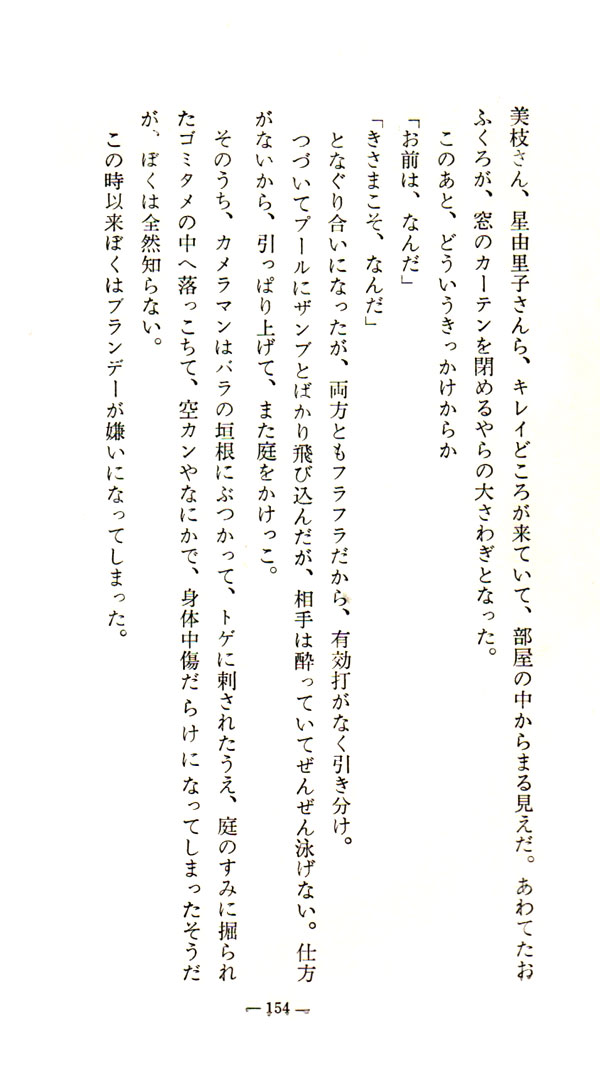 美枝さん、星由里子さんら、キレイどころが来ていて、部屋の中からまる見えだ。あわてたお
ふくろが、窓のカーテンを閉めるやらの大さわぎとなった。
このあと、どういうきっかけからか
「お前は、なんだ」
「きさまこそ、なんだ」
となぐり合いになったが、両方ともフラフラだから、有効打がなく引き分け。
つづいてプールにザンブとばかり飛び込んだが、相手は酔っていてぜんぜん泳げない。仕方
がないから、引っぱり上げて、また庭をかけっこ。
そのうち、カメラマンはバラの垣根にぶつかって、トゲに刺されたうえ、庭のすみに掘られ
たゴミタメの中へ落っこちて、空カンやなにかで、身体中傷だらけになってしまったそうだ
が、ぼくは全然知らない。
この時以来ぼくはブランデーが嫌いになってしまった。
— 154 —